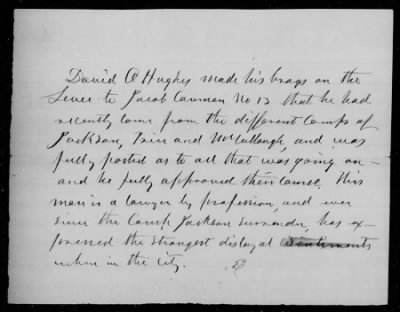 David O Hughes made his brags on the
Levee to Jacob Cawman No 13 that he had
recently come from the different Camps of
Jackson, Price and McCullough, and was
fully posted as to all that was going on —
and he fully approved their cause. This
man is a lawyer by profession, and ever
since the Camp Jackson surrender, has ex-
pressed the strongest disloyal sentiments
when in the city.